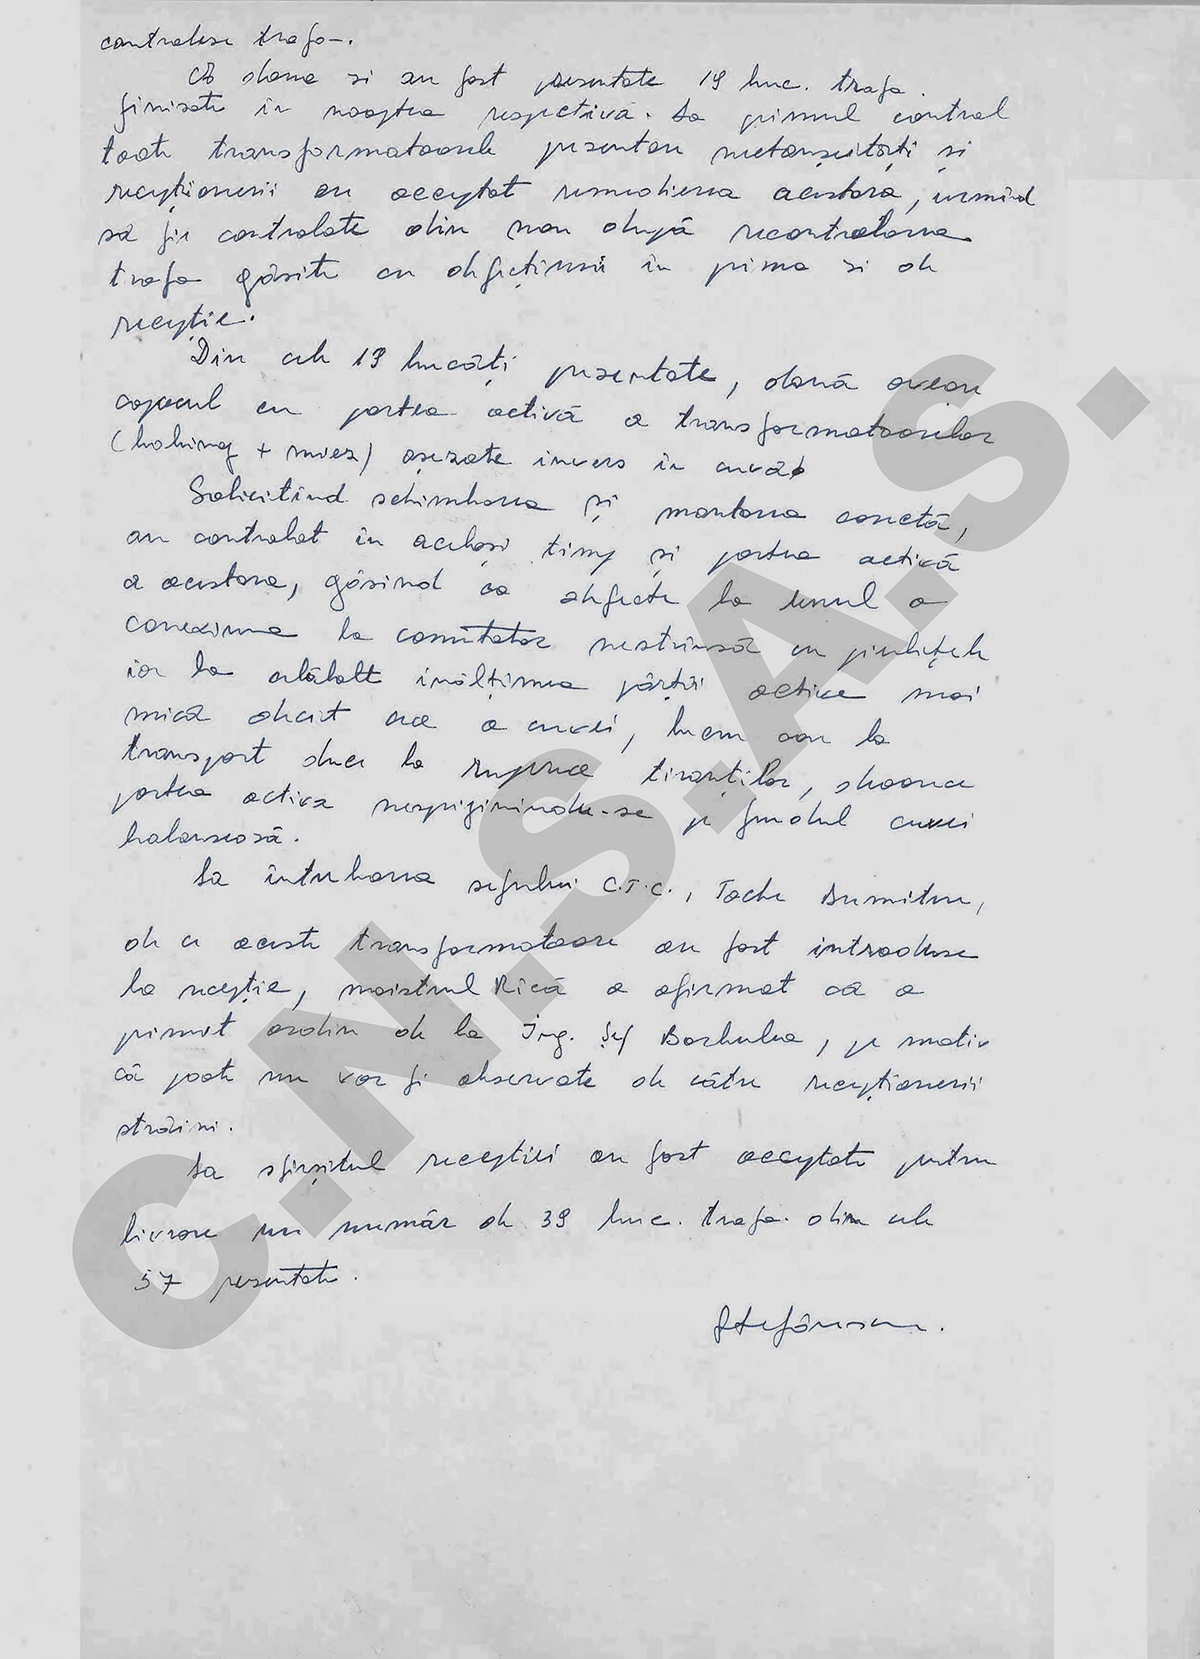 controleze trafo-.
A doua zi au fost prezentate 19 buc. trafo
finisate în noaptea respectivă. La primul control
toate transformatoarele prezentau neetanșeități și
recepționerii au acceptat remedierea acestora, urmînd
să fie controlate din nou după recontrolarea
trafo găsite cu obiecțiuni în prima zi de
recepție.
Din cele 19 bucăți prezentate, două aveau
capacul cu partea activă a transformatoarelor
(bobinaj + miez) așezate invers în cuvă.
Solicitînd schimbarea și montarea corectă,
au controlat în același timp și partea activă
a acestora, găsind ca defecte la unul o
conexiune la comutator nestrînsă cu piulițele
iar la celălalt înălțimea părții active mai
mică decît cea a cuvei, lucru care la
transport duce la ruperea tiranților, deoarece
partea activă nesprijinindu-se pe fundul cuvei
balansează.
La întrebarea șefului C.T.C., Tache Dumitru,
de ce aceste transformatoare au fost introduse
la recepție, maistrul Rică a afirmat că a
primit ordin de la Ing. Șef Barbulea, pe motiv
că poate nu vor fi observate de către recepționerii
străini.
La sfîrșitul recepției au fost acceptate pentru
livrare un număr de 39 buc. trafo. din cele
57 prezentate.
Ștefănescu.
C.N.S.A.S.